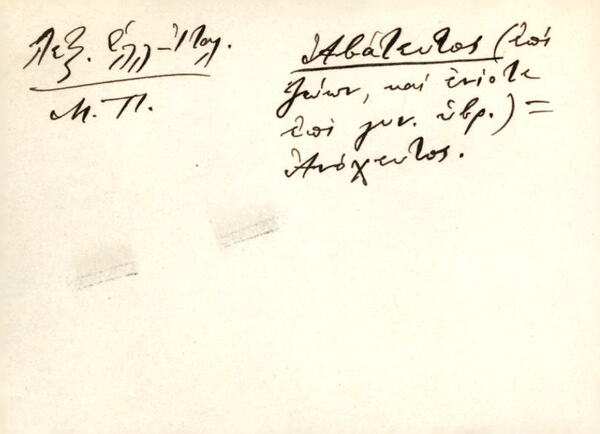 Λεξ. Ἑλλ-Ἰταλ.
Μ. Π.
Ἀβάτευτος (ἐπὶ
ζώων, καὶ ἐνίοτε
ἐπὶ γυν. ὑβρ.) =
Ἀνόχευτος.